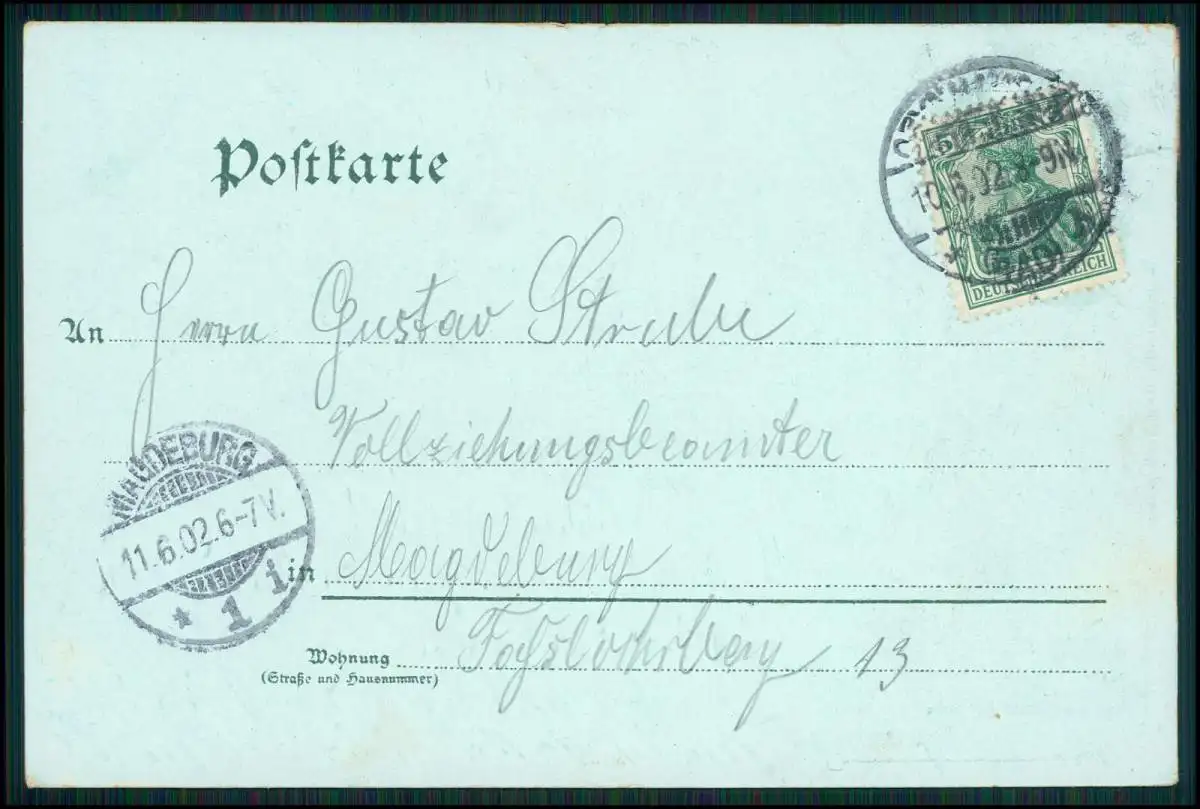 Postkarte
5
10.6.02. 8-9N.
DEUTSCHES REICH
An Herrn Gustav Strube
Vollziehungsbeamter
in Magdeburg
Wohnung 13
(Straße und Hausnummer)
MAGDEBURG
11.6.02.6-7V.
* 1 i